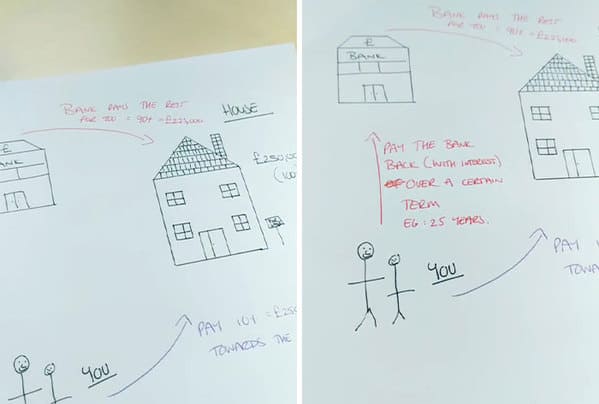 BANK PAYS THE REST
FOR YOU = 90% = £225,000
HOUSE
£
BANK
£250,00
(100
YOU
PAY 10% = £25,0
TOWARDS THE
BANK PAYS THE REST
FOR YOU = 90% = £225,000
£
BANK
PAY THE BANK
BACK (WITH INTEREST)
OVER A CERTAIN
TERM
EG: 25 YEARS.
YOU
PAY 1
TOWA